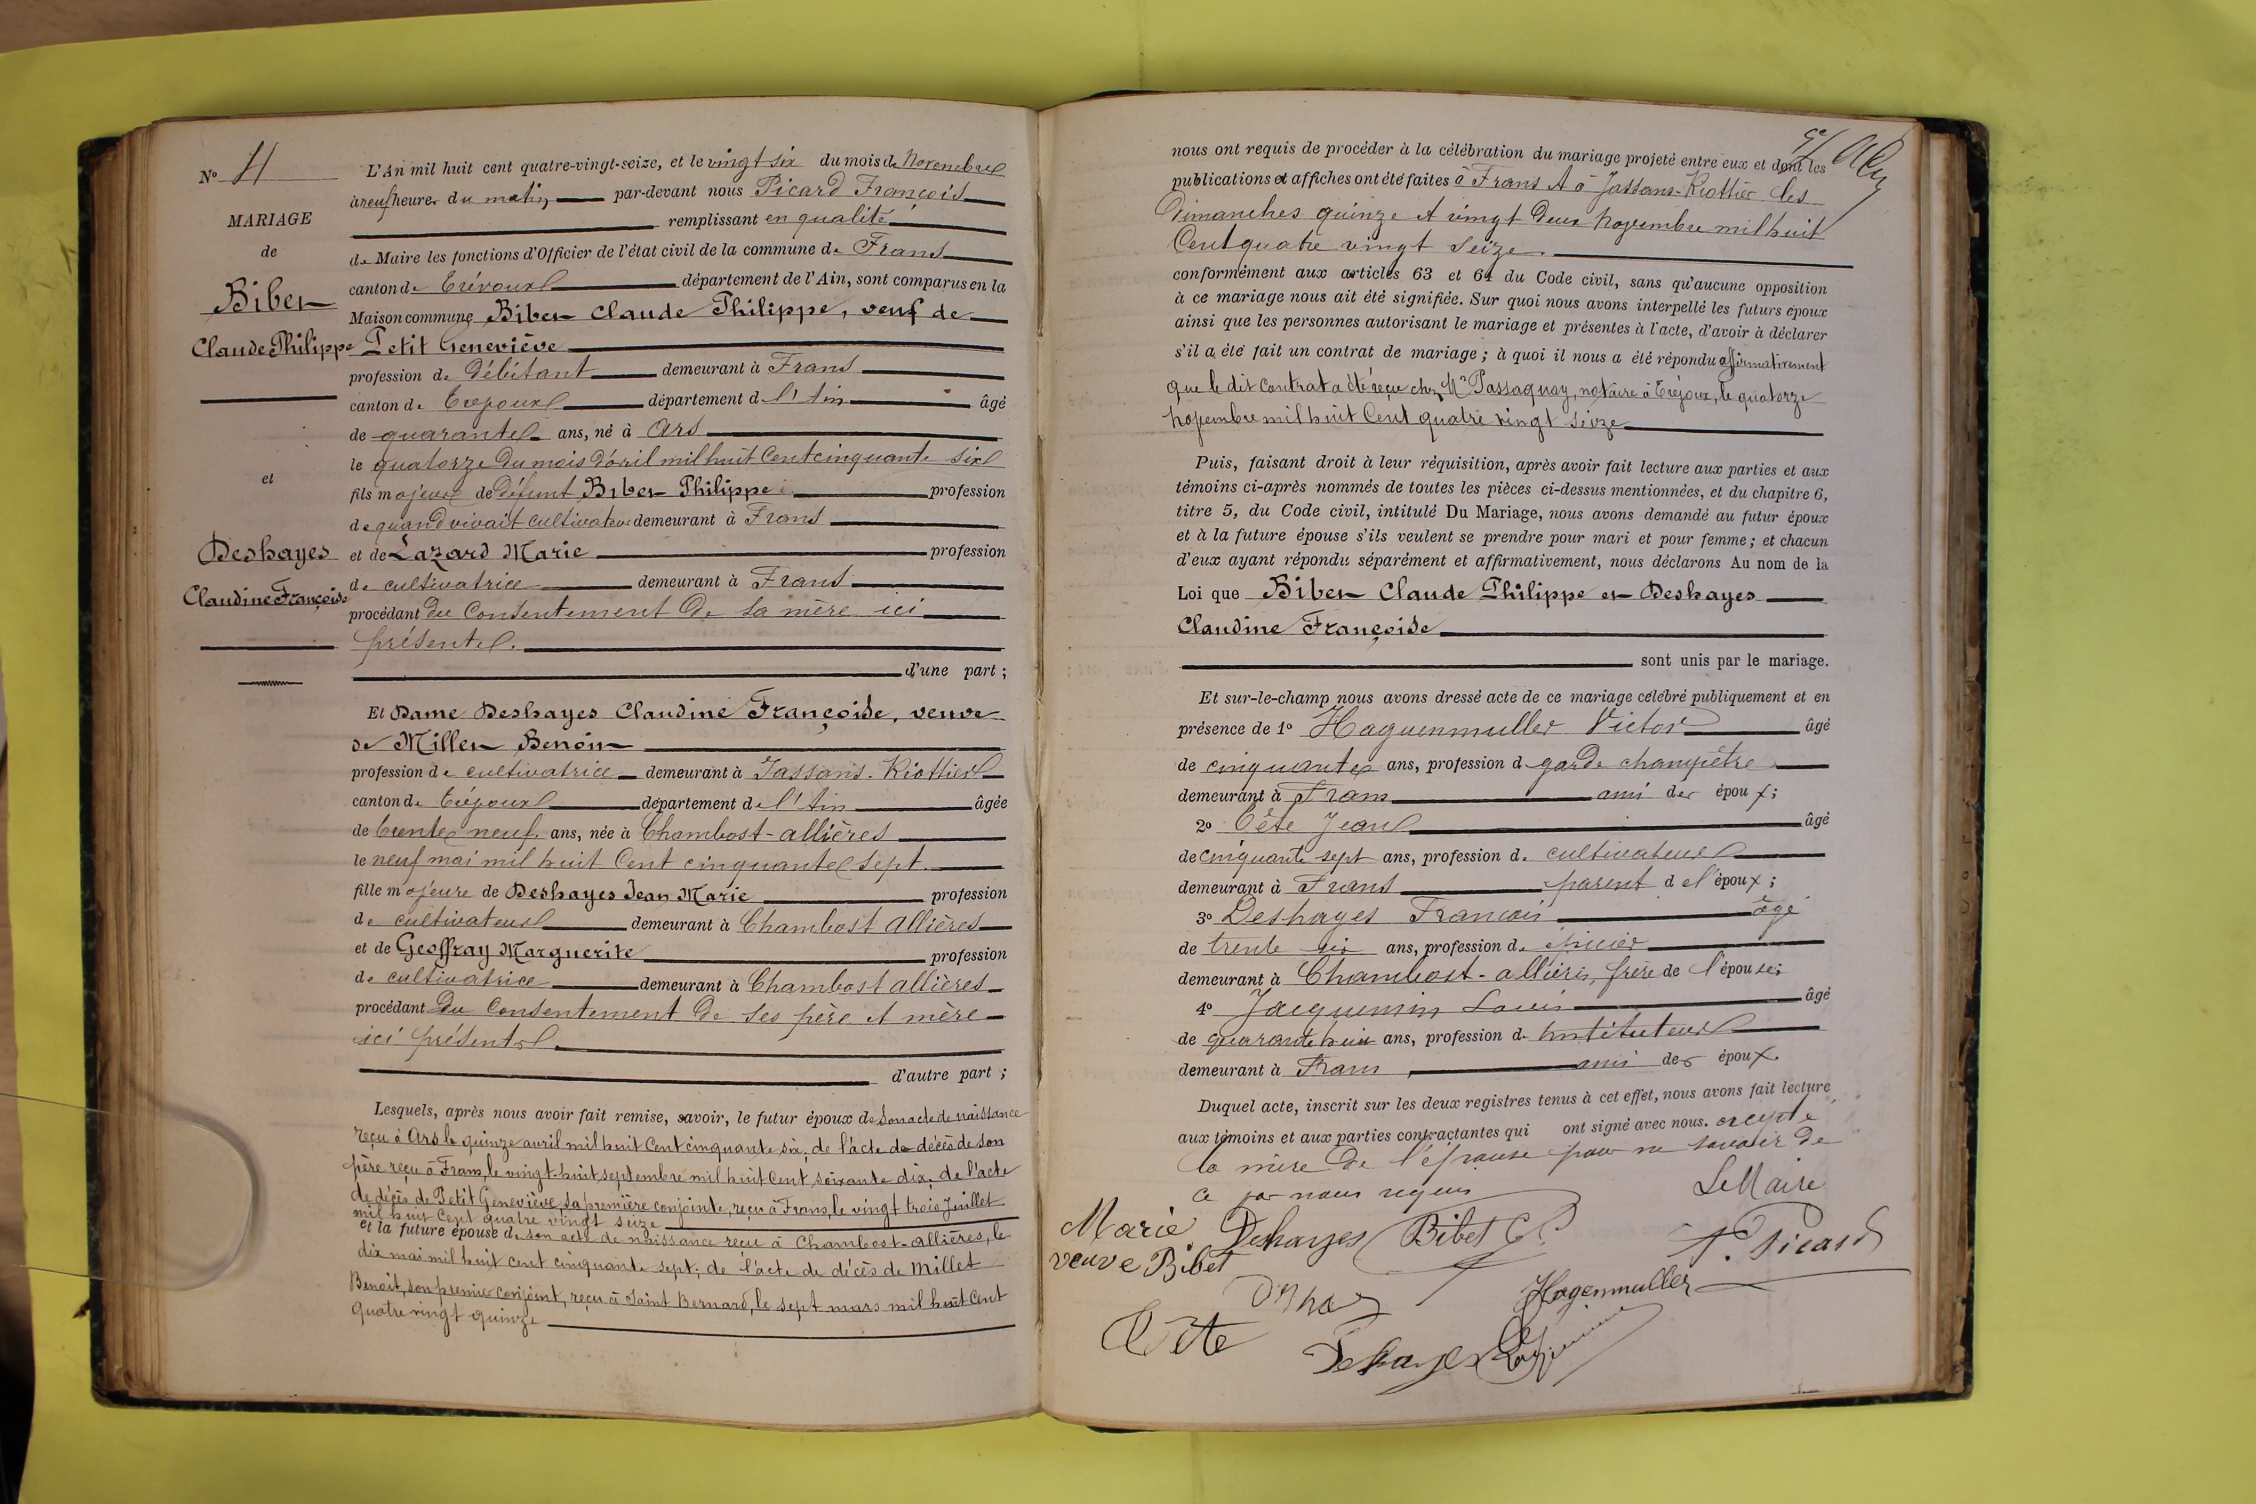 N° 11
MARIAGE
de
Bibet
Claude Philippe
et
Deshayes
Claudine Françoise
L'An mil huit cent quatre-vingt-seize, et le vingt six du mois de Novembre
à neuf heures du matin par-devant nous Picard François
remplissant en qualité
de Maire les fonctions d'Officier de l'état civil de la commune de Frans
canton de Trévoux département de l'Ain, sont comparus en la
Maison commune Bibet Claude Philippe, veuf de
Petit Geneviève
profession de débitant demeurant à Frans
canton de Trévoux département de l'Ain âgé
de quarante ans, né à Ars
le quatorze du mois d'avril mil huit cent cinquante six
fils majeur de défunt Bibet Philippe profession
de quand vivait cultivateur demeurant à Frans
et de Lazard Marie profession
de cultivatrice demeurant à Frans
procédant du consentement de sa mère ici
présente.
d'une part ;
Et Dame Deshayes Claudine Françoise, veuve
de Millet Benoît
profession de cultivatrice demeurant à Jassans-Riottier
canton de Trévoux département de l'Ain âgée
de trente neuf ans, née à Chambost-allières
le neuf mai mil huit cent cinquante sept
fille majeure de Deshayes Jean Marie profession
de cultivateur demeurant à Chambost allières
et de Geoffray Marguerite profession
de cultivatrice demeurant à Chambost allières
procédant du consentement de ses père et mère
ici présents
d'autre part ;
Lesquels, après nous avoir fait remise, savoir, le futur époux de son acte de naissance
reçu à Ars le quinze avril mil huit cent cinquante six, de l'acte de décès de son
père reçu à Frans, le vingt-huit septembre mil huit cent soixante dix, de l'acte
de décès de Petit Geneviève, sa première conjointe, reçu à Frans, le vingt trois Juillet
mil huit cent quatre vingt seize
et la future épouse de son acte de naissance reçu à Chambost-allières, le
dix mai mil huit cent cinquante sept, de l'acte de décès de Millet
Benoît, son premier conjoint, reçu à Saint Bernard, le sept mars mil huit cent
quatre vingt quinze
nous ont requis de procéder à la célébration du mariage projeté entre eux et dont les
publications et affiches ont été faites à Frans et à Jassans-Riottier les
Dimanches quinze et vingt deux novembre mil huit
Cent quatre vingt seize.
conformément aux articles 63 et 64 du Code civil, sans qu'aucune opposition
à ce mariage nous ait été signifiée. Sur quoi nous avons interpellé les futurs époux
ainsi que les personnes autorisant le mariage et présentes à l'acte, d'avoir à déclarer
s'il a été fait un contrat de mariage ; à quoi il nous a été répondu affirmativement
que le dit contrat a été reçu chez Me Passaquay, notaire à Trévoux, le quatorze
novembre mil huit Cent quatre vingt seize
Puis, faisant droit à leur réquisition, après avoir fait lecture aux parties et aux
témoins ci-après nommés de toutes les pièces ci-dessus mentionnées, et du chapitre 6,
titre 5, du Code civil, intitulé Du Mariage, nous avons demandé au futur époux
et à la future épouse s'ils veulent se prendre pour mari et pour femme ; et chacun
d'eux ayant répondu séparément et affirmativement, nous déclarons Au nom de la
Loi que Bibet Claude Philippe et Deshayes
Claudine Françoise
sont unis par le mariage.
Et sur-le-champ nous avons dressé acte de ce mariage célébré publiquement et en
présence de 1° Haguenmuller Victor âgé
de cinquante ans, profession de garde champêtre
demeurant à Frans ami des époux ;
2° Tête Jean âgé
de cinquante sept ans, profession de cultivateur
demeurant à Frans parent de l'époux ;
3° Deshayes François âgé
de trente six ans, profession d. épicier
demeurant à Chambost-allières, frère de l'épouse ;
4° Jacquemin Louis âgé
de quarante huit ans, profession d. Instituteur
demeurant à Frans ami des époux.
Duquel acte, inscrit sur les deux registres tenus à cet effet, nous avons fait lecture
aux témoins et aux parties contractantes qui ont signé avec nous. excepté
la mère de l'épouse pour ne savoir de
ce par nous requis
Le Maire
Marie Deshayes Bibet C.P.
veuve Bibet
F. Picard
Hagenmuller
Tête
Deshayes